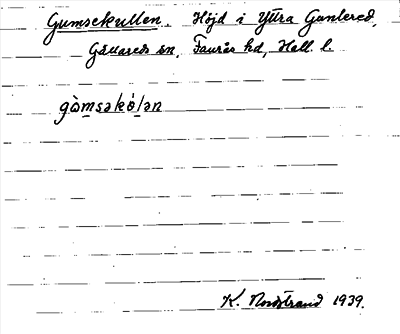 Gumsekullen. Höjd i Yttra Gunlered,
Gällareds sn, Faurås hd, Hall. l.
gòmsəkö́lən
K. Nordstrand 1939.